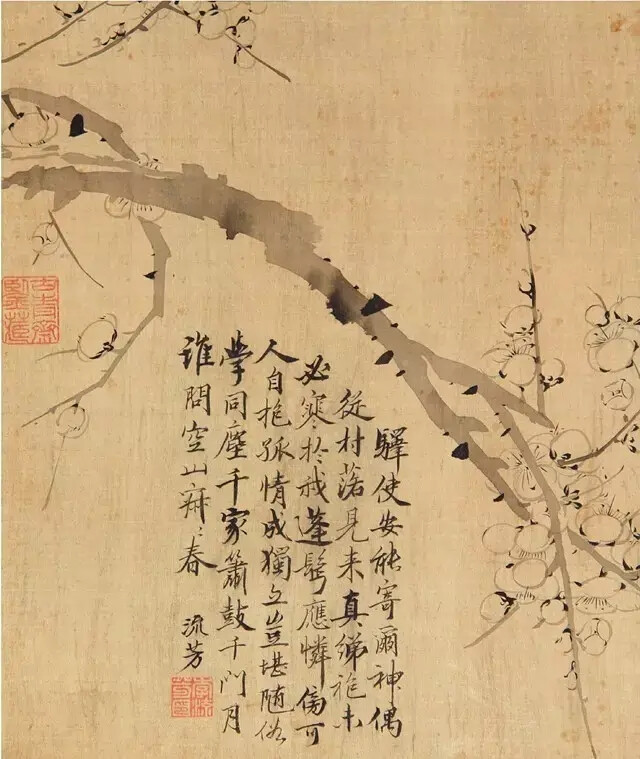 驛使安能寄爾神偶
從村落見来真綈袍未
必寒於我蓬鬢應憐傍可
人自抱孤情成獨立豈堪随俗
學同塵千家簫鼓千門月
誰問空山寂〻春
流芳